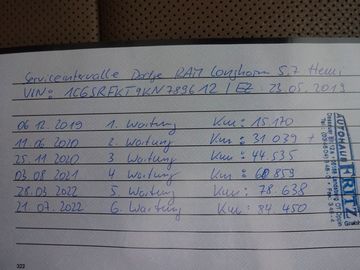 Serviceintervalle Dodge RAM Longhorn 5,7 Hemi
VIN: 1C6SRFKT9KN789612 / EZ: 23.05.2019
06.12.2019 1. Wartung Km: 15.170
11.06.2020 2. Wartung Km: 31.039 +
25.11.2020 3. Wartung Km: 44.535
03.08.2021 4. Wartung Km: 60.859
28.03.2022 5. Wartung Km: 78.638
21.07.2022 6. Wartung Km: 84.450
AUTOHAUS
FRITZ
GmbH
322